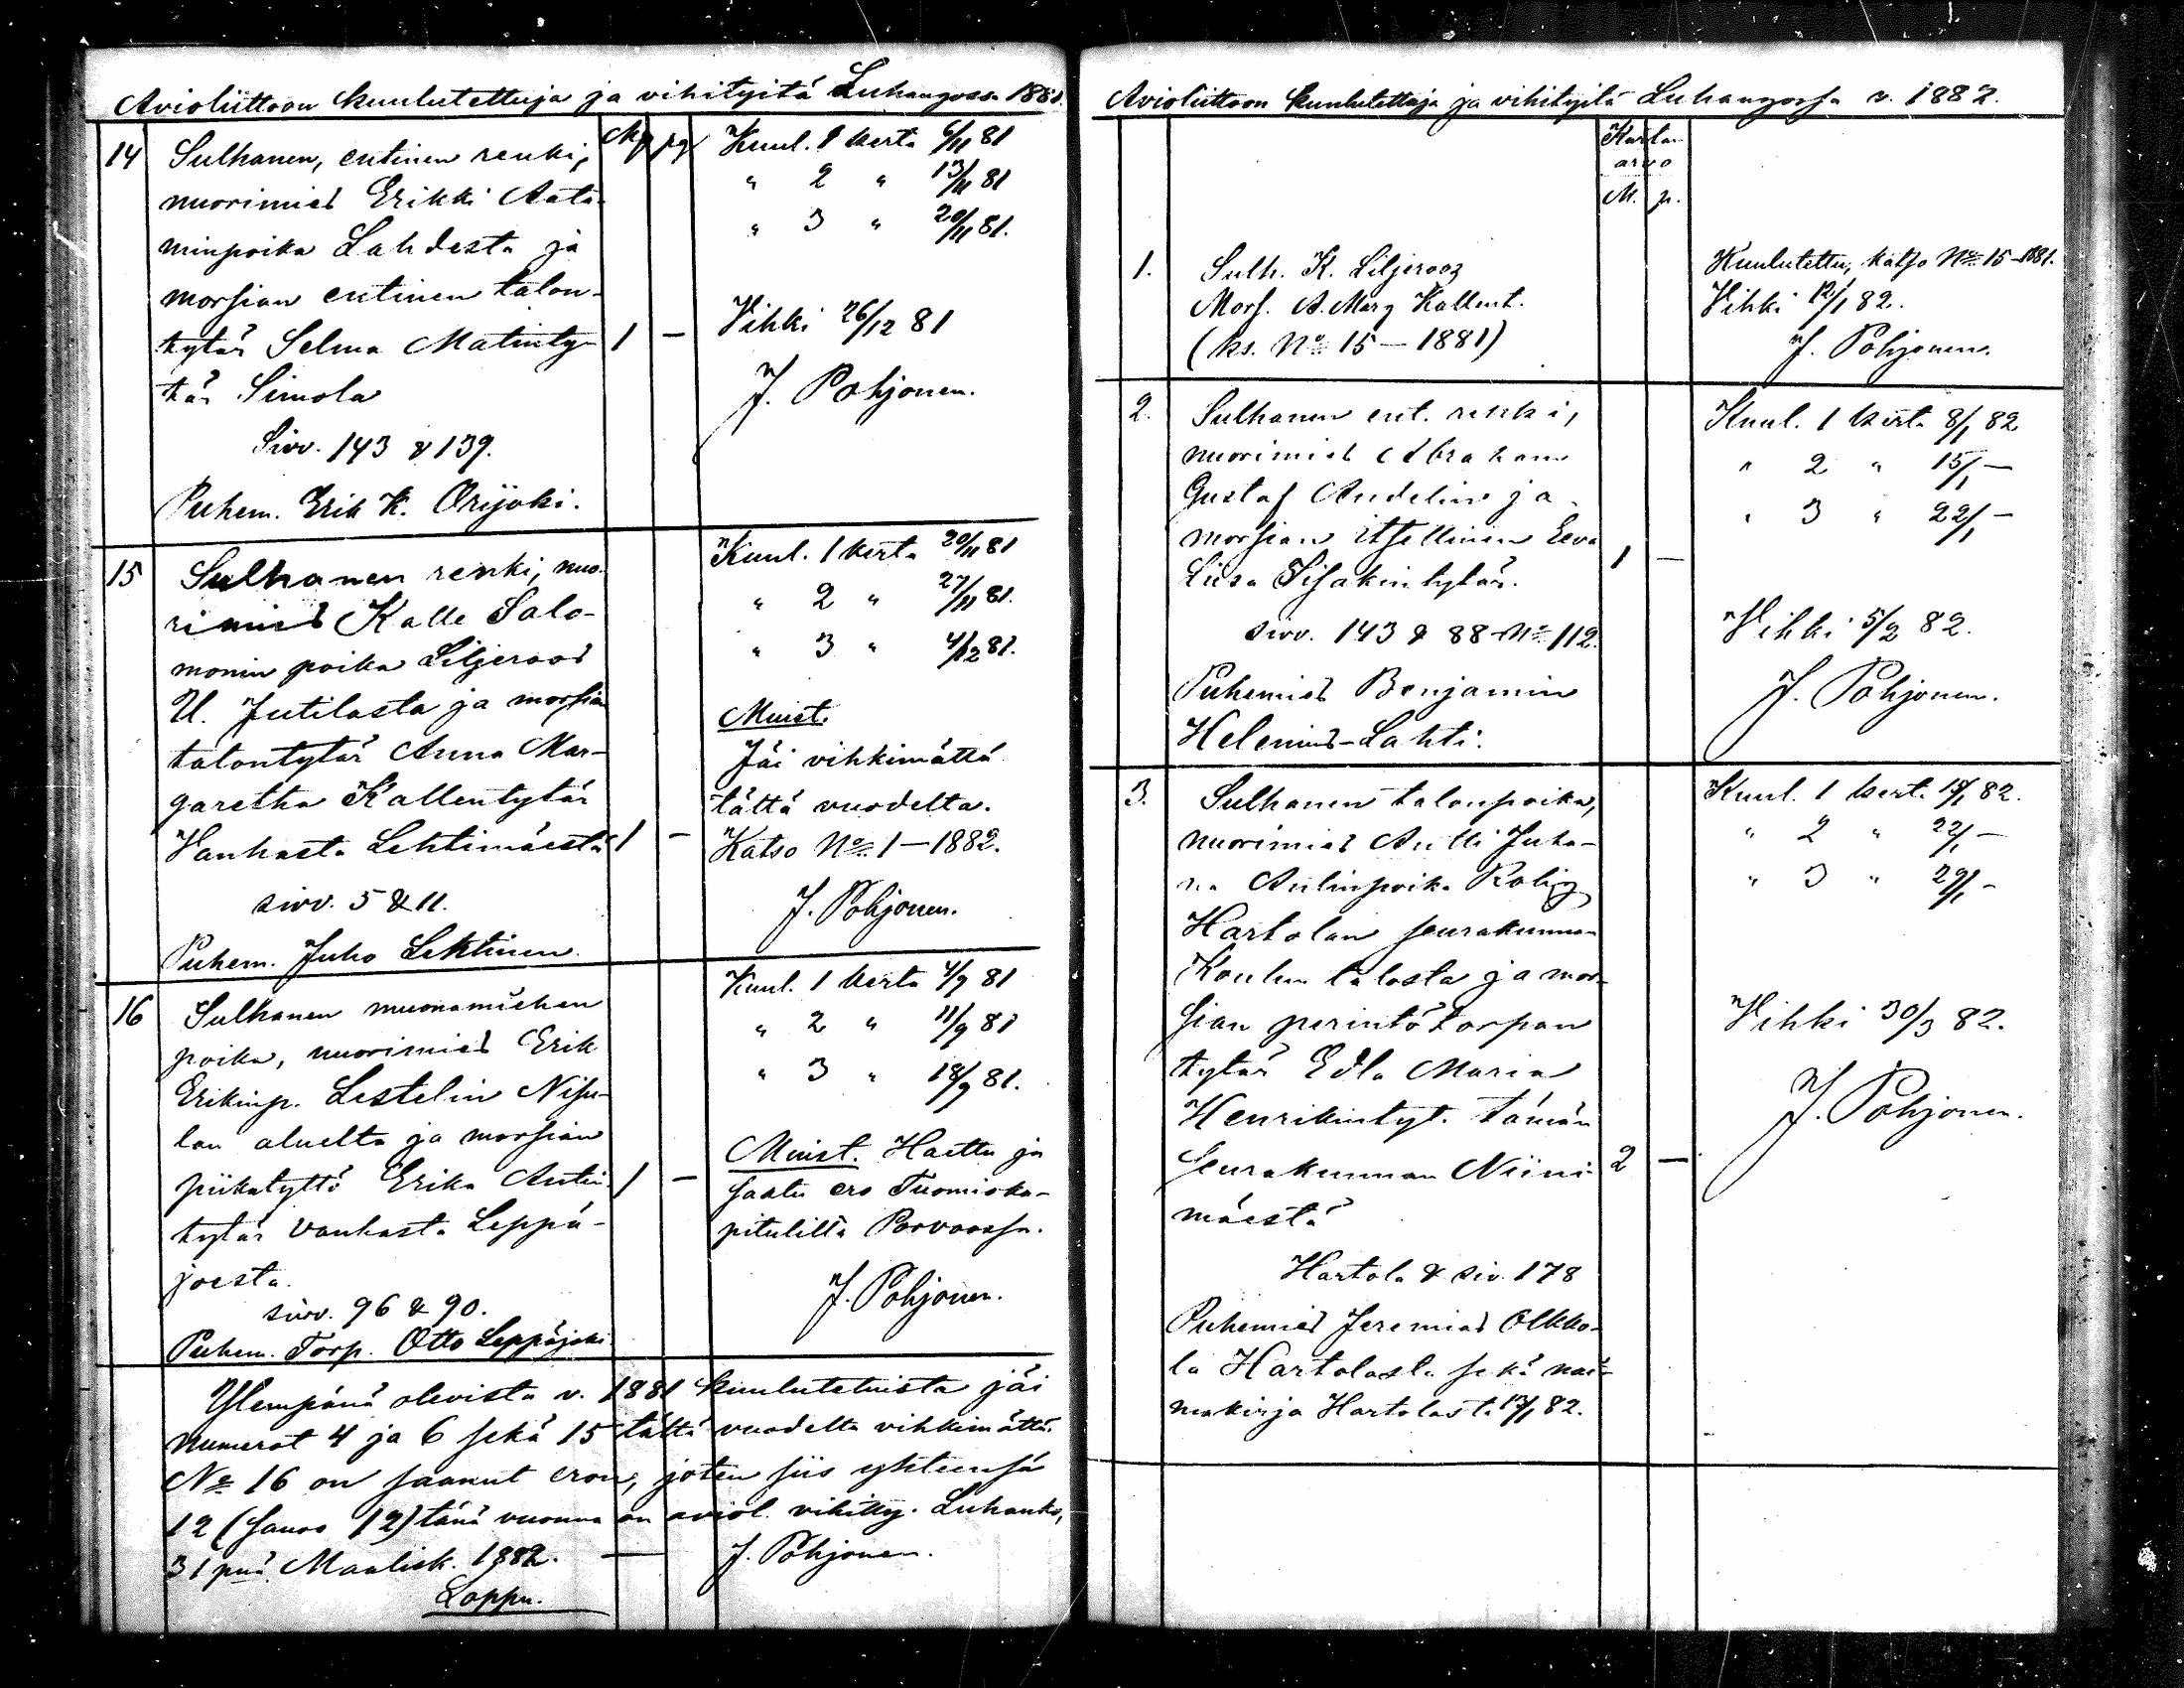 Avioliittoon kuulutettuja ja vihityitä Luhangossa 1881.
Mk pg
14 Sulhanen, entinen renki,
nuorimies Erikki Aata-
minpoika Lahdesta ja
morsian entinen talon-
tytär Selma Matinty-
tär Simola
Sivv. 143 & 139.
Puhem. Erik K. Orijoki.
1 —
Kuul. 1 kerta 6/11 81
" 2 " 13/11 81
" 3 " 20/11 81.
Vihki 26/12 81
J. Pohjonen.
15 Sulhanen renki, nuo-
rimies Kalle Salo-
monin poika Liljeroos
U. Jutilasta ja morsian
talontytär Anna Mar-
garetha Kallentytär
Vanhasta Lehtimäestä
sivv. 5 & 11.
Puhem. Juho Lehtinen.
1 —
Kuul. 1 kerta 20/11 81
" 2 " 27/11 81.
" 3 " 4/12 81.
Muist.
Jäi vihkimättä
tältä vuodelta.
Katso No 1 – 1882.
J. Pohjonen.
16 Sulhanen muonamiehen
poika, nuorimies Erik
Erikinp. Lestelin Nisu-
lan aluelta ja morsian
piikatyttö Erika Antin
tytär vanhasta Leppä-
joesta.
sivv. 96 & 90.
Puhem. Torp. Otto Leppäjoki
1 —
Kuul. 1 kerta 4/9 81
" 2 " 11/9 81
" 3 " 18/9 81.
Muist. Haettu ja
saatu ero Tuomioka-
pitulilta Porvoossa.
J. Pohjonen.
Ylempänä olevista v. 1881 kuulutetuista jäi
numerot 4 ja 6 sekä 15 tältä vuodelta vihkimättä.
No 16 on saanut eron, joten siis yhteensä
12 (sanoo 12) tänä vuonna on aviol. vihitty. Luhanko,
31 pnä Maalisk. 1882. — J. Pohjonen.
Loppu.
Avioliittoon kuulutettuja ja vihityitä Luhangossa v. 1882.
Kartan
arvo
M. p.
1. Sulh. K. Liljerooz
Mors. A. Marg Kallent.
(ks. No 15 – 1881)
Kuulutettu, katso No 15 – 1881.
Vihki 12/1 82.
J. Pohjonen.
2. Sulhanen ent. renki,
nuorimies Abraham
Gustaf Andelin ja
morsian itsellinen Eeva
Liisa Iisakintytär.
sivv. 143 & 88 No 112.
Puhemies Benjamin
Helenius-Lahti.
1 —
Kuul. 1 kerta 8/1 82
" 2 " 15/1 —
" 3 " 22/1 —
Vihki 5/2 82.
J. Pohjonen.
3. Sulhanen talonpoika,
nuorimies Antti Juha-
na Antinpoika
Hartolan seurakunnan
Kouhun talosta ja mor-
sian perintötorpan
tytär Edla Maria
Henrikintyt. tämän
seurakunnan Niini-
mäestä
Hartola & siv. 178
Puhemies Jeremias Olkko-
la Hartolasta sekä nai-
makirja Hartolasta 13/1 82.
2 —
Kuul. 1 kert. 15/1 82.
" 2 " 22/1 —
" 3 " 29/1 —
Vihki 30/3 82.
J. Pohjonen.